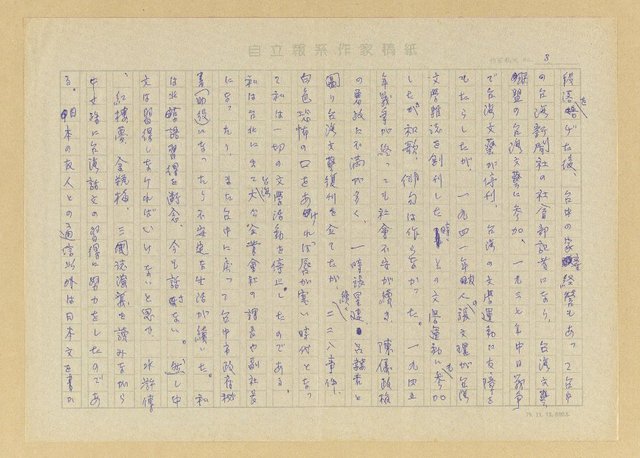 自立報系作家稿紙
8
終了した後、台中の家を経営もあって台中
の台湾新聞社の社会部記者になり、台湾文藝
聯盟の台湾文藝に参加。一九三七年中日戦争
で台湾文藝が停刊、台湾の文学運動に支障を
もたらしたが、一九四一年張文環が台湾
文学雑誌を創刊した時その文学運動に参加
したが和歌、俳句は作らなかった。一九四五
年戦争が終っても社会不安が続き、陳儀政権
の暴政に不満が多く、一時
台湾文藝復刊を企てたが二二八事件、
白色恐怖の口をあければ唇が寒い時代となっ
て私は一切の文学活動を停止したのである。
私は台北に来て大きな台湾企業会社の課長や副社長
になったり、また台中に戻って台中市政府秘
書(助役)になったり不安定な生活が続いた。私
は北京語習得を断念、今も話せない。然し中
文は習得しなければいけないと思い、水滸傳
、紅樓夢、金瓶梅、三國志演義を讀みながら
中文特に台湾話文の習得に努力をしたのであ
る。日本の友人との通信以外は日本文を書か